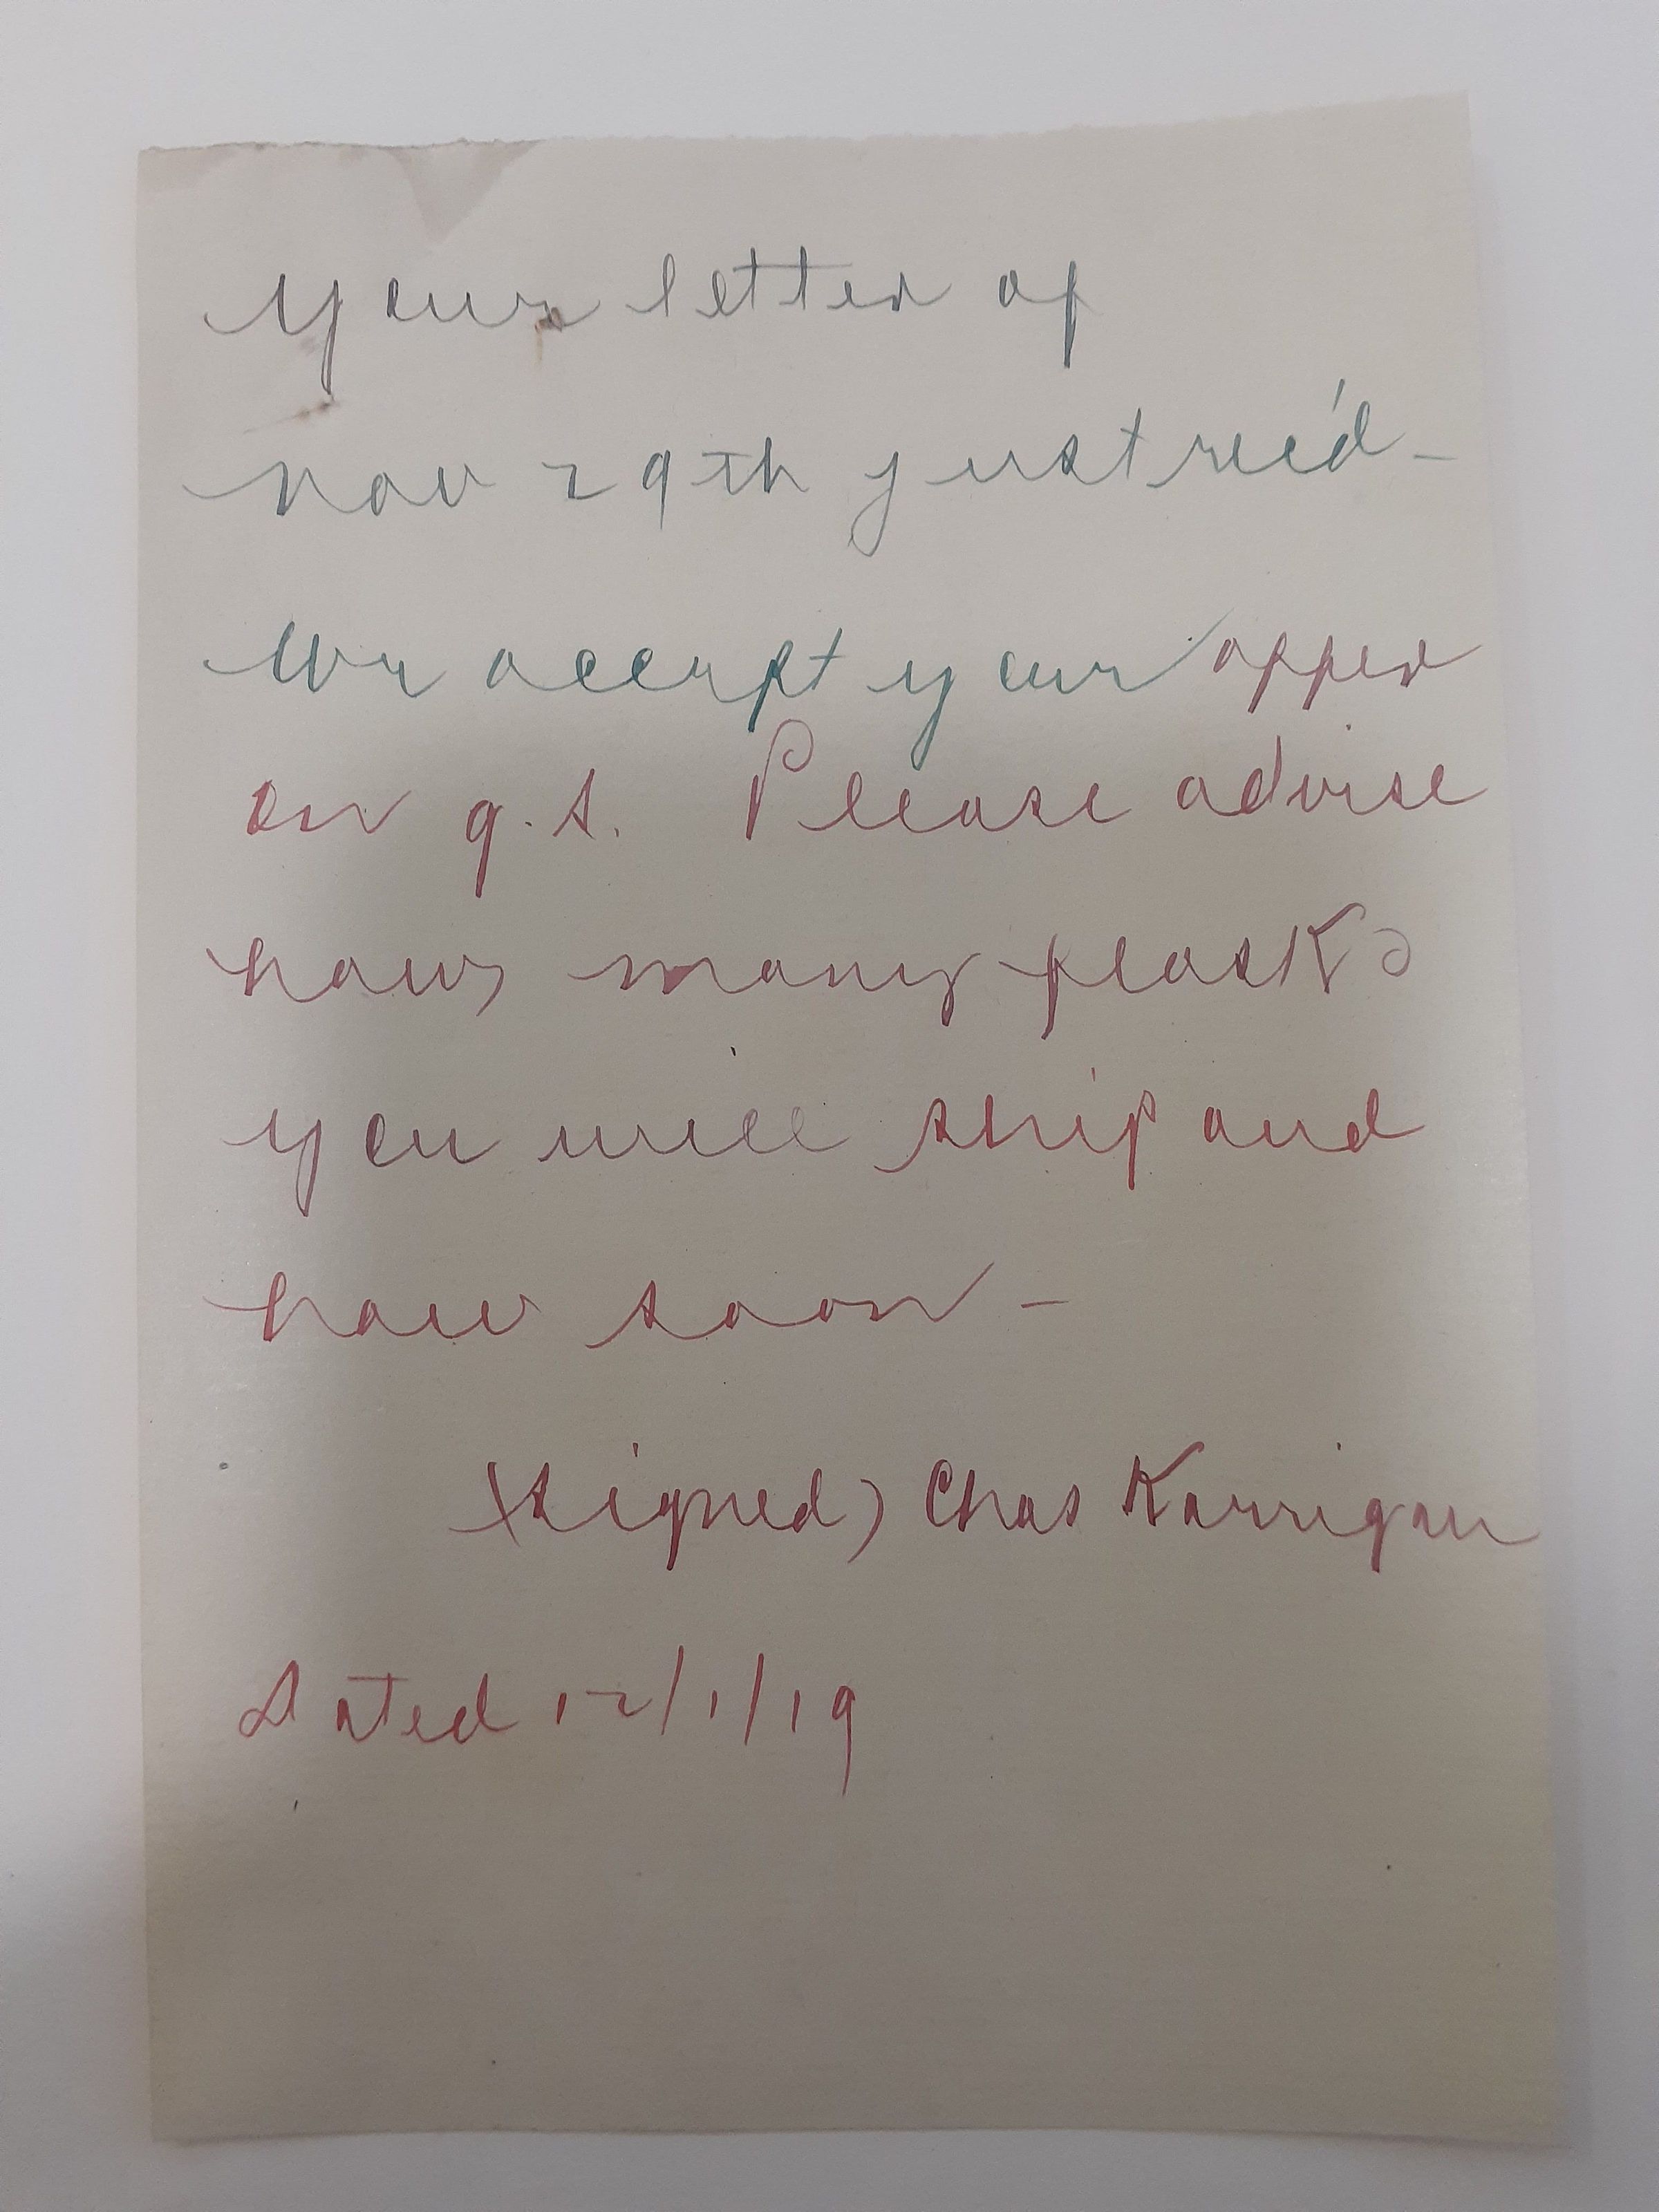 Your letter of
nov 29th just rec'd -
We accept your offer
on q.s. Please advise
how many flasks
you will ship and
how soon -
(signed) Chas Karrigan
Dated 12/1/19